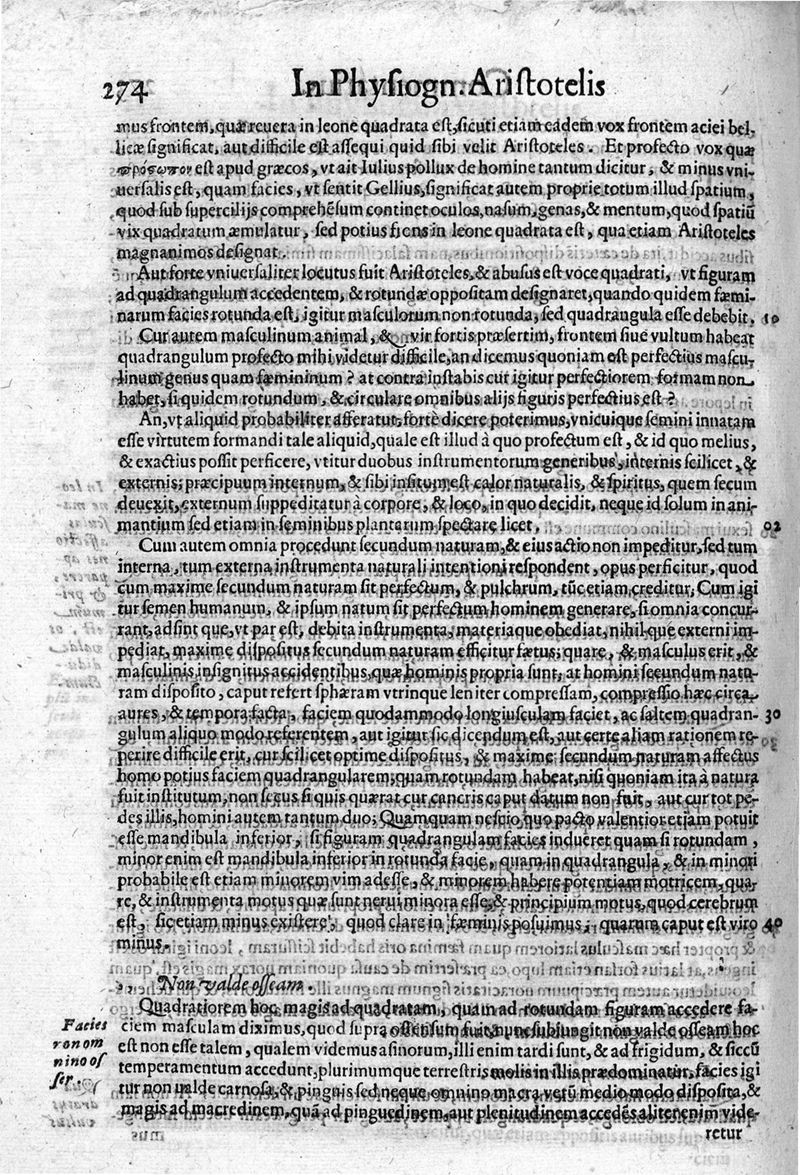 274 In Physiogn. Aristotelis
mus frontem, quæ reuera in leone quadrata est, sicuti etiam eadem vox frontem aciei bel-
licæ significat, aut difficile est assequi quid sibi velit Aristoteles. Et profecto vox quæ
πρόσωπον est apud græcos, vt ait Iulius pollux de homine tantum dicitur, & minus vni-
uersalis est, quam facies, vt sentit Gellius, significat autem proprie totum illud spatium,
quod sub supercilijs comprehẽsum continet oculos, nasum, genas, & mentum, quod spatiũ
vix quadratum æmulatur, sed potius fiens in leone quadrata est, qua etiam Aristoteles
magnanimos designat.
Aut forte vniuersaliter locutus fuit Aristoteles, & abusus est voce quadrati, vt figuram
ad quadrangulum accedentem, & rotundæ oppositam designaret, quando quidem fæmi-
narum facies rotunda est, igitur masculorum non rotunda, sed quadrangula esse debebit. 10
Cur autem masculinum animal, & vir fortis præsertim, frontem siue vultum habeat
quadrangulum profecto mihi videtur difficile, an dicemus quoniam est perfectius mascu-
linum genus quam fæmininum? at contra instabis cur igitur perfectiorem formam non
habet, si quidem rotundum, & circulare omnibus alijs figuris perfectius est?
An, vt aliquid probabiliter afferatur, fortè dicere poterimus, vnicuique semini innatam
esse virtutem formandi tale aliquid, quale est illud à quo profectum est, & id quo melius,
& exactius possit perficere, vtitur duobus instrumentorum generibus, internis scilicet, &
externis; præcipuum internum, & sibi insitum est calor naturalis, & spiritus, quem secum
deuexit, externum suppeditatur à corpore, & loco, in quo decidit, neque id solum in ani-
mantium sed etiam in seminibus plantarum spectare licet. 02
Cum autem omnia procedunt secundum naturam, & eius actio non impeditur, sed tum
interna, tum externa instrumenta naturali intentioni respondent, opus perficitur, quod
cùm maxime secundum naturam sit perfectum, & pulchrum, tũc etiam creditur, Cum igi
tur semen humanum, & ipsum natum sit perfectum hominem generare, si omnia concur-
rant, adsint que, vt par est, debita instrumenta, materiaque obediat, nihil que externi im-
pediat, maxime dispositus secundum naturam efficitur fætus; quare, & masculus erit, &
masculinis insignitus accidentibus, quæ hominis propria sunt, at homini secundum natu-
ram disposito, caput refert sphæram vtrinque leniter compressam, compressio hæc circa
aures, & tempora facta, faciem quodammodo longiusculam faciet, ac saltem quadran- 30
gulum aliquo modo referentem, aut igitur sic dicendum est, aut certe aliam rationem re-
perire difficile erit, cur scilicet optime dispositus, & maxime secundum naturam affectus
homo potius faciem quadrangularem; quam rotundam habeat, nisi quoniam ita à natura
fuit institutum, non secus si quis quærat cur cancris caput datum non fuit, aut cur tot pe-
des illis, homini autem tantum duo; Quamquam nescio quo pacto valentior etiam potuit
esse mandibula inferior, si figuram quadrangulam facies indueret quam si rotundam,
minor enim est mandibula inferior in rotunda facie, quam in quadrangula, & in minori
probabile est etiam minorem vim adesse, & minorem habere potentiam motricem, qua-
re, & instrumenta motus quæ sunt nerui minora esse, & principium motus, quod cerebrum
est, sic etiam minus existere, quod clare in fæminis posuimus, quarum caput est viro 40
minus.
Non valde osseam.
Quadratiorem hoc magis ad quadratam, quam ad rotundam figuram accedere fa-
Facies
ron om
nino os
ser.
ciem masculam diximus, quod supra ostensum fuit, nunc subiungit non valde osseam hoc
est non esse talem, qualem videmus asinorum, illi enim tardi sunt, & ad frigidum, & siccũ
temperamentum accedunt, plurimumque terrestris molis in illis prædominatur, facies igi
tur non valde carnosa, & pinguis sed neque omnino macra verũ medio modo disposita, &
magis ad macredinem, quã ad pinguedinem, aut plenitudinem accedẽs aliter enim vide-
retur